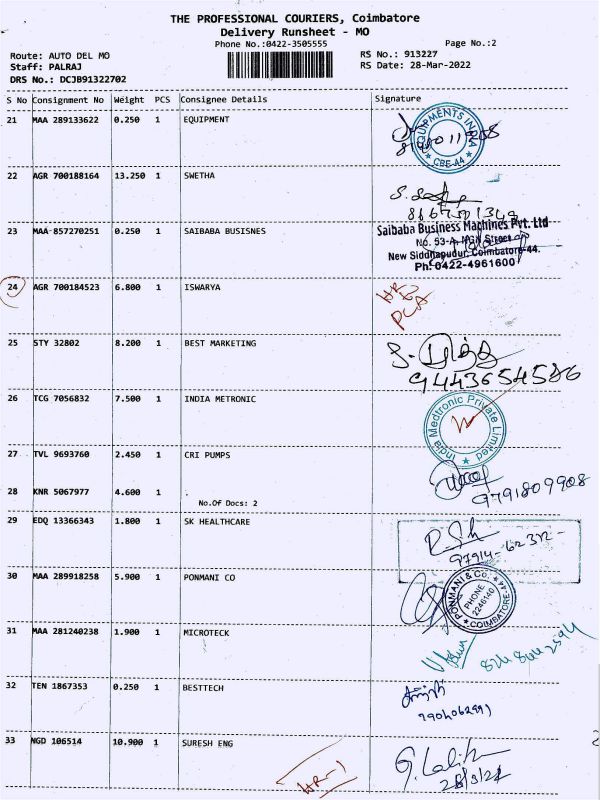 THE PROFESSIONAL COURIERS, Coimbatore
Delivery Runsheet - MO
Phone No.:0422-3505555
Page No.:2
Route: AUTO DEL MO
Staff: PALRAJ
DRS No.: DCJB91322702
RS No.: 913227
RS Date: 28-Mar-2022
S No Consignment No Weight PCS Consignee Details Signature
21 MAA 289133622 0.250 1 EQUIPMENT
EQUIPMENTS INDIA
CBE-44
22 AGR 700188164 13.250 1 SWETHA
23 MAA 857270251 0.250 1 SAIBABA BUSISNES
Saibaba Business Machines Pvt. Ltd
No. 53-A, MGR Street
New Siddhapudur, Coimbatore-44.
Ph: 0422-4961600
24 AGR 700184523 6.800 1 ISWARYA
25 STY 32802 8.200 1 BEST MARKETING
9443654586
26 TCG 7056832 7.500 1 INDIA METRONIC
India Medtronic Private Limited
27 TVL 9693760 2.450 1 CRI PUMPS
28 KNR 5067977 4.600 1
No.Of Docs: 2
9791809908
29 EDQ 13366343 1.800 1 SK HEALTHCARE
R.Sh
97914-62312-
30 MAA 289918258 5.900 1 PONMANI CO
PONMANI & Co.
PHONE
2246140
COIMBATORE-44
31 MAA 281240238 1.900 1 MICROTECK
32 TEN 1867353 0.250 1 BESTTECH
33 NGD 106514 10.900 1 SURESH ENG
HR-1
G. Lalith
28/3/22